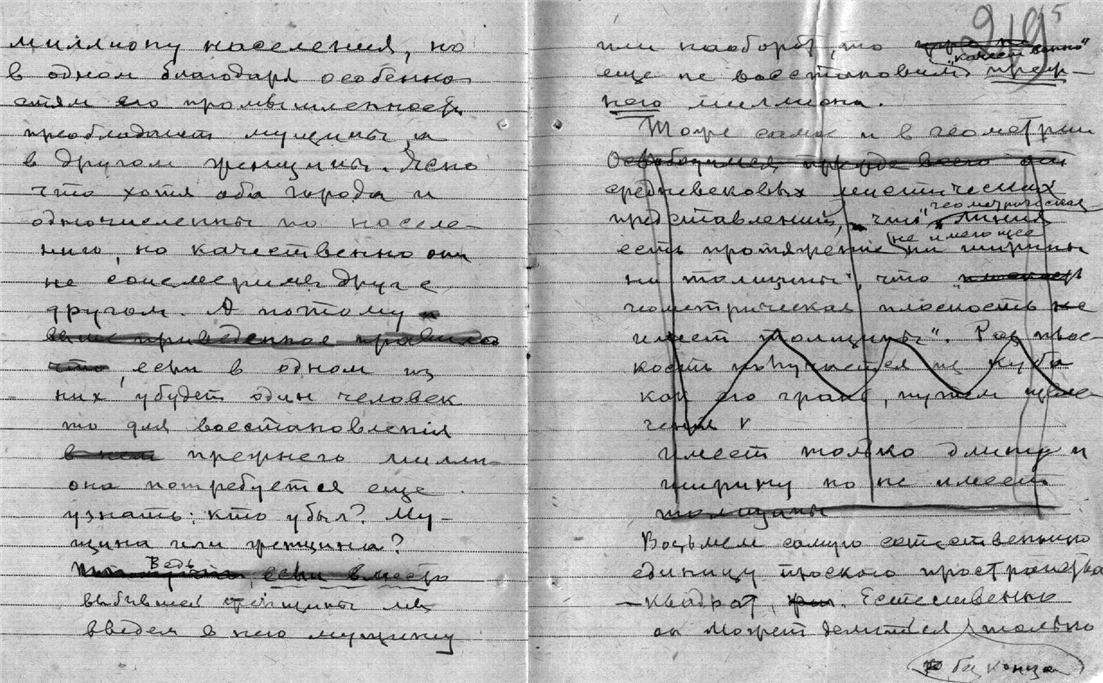 миллиону населения, но
в одном благодаря особенно-
стям его промышленности
преобладают мущины, а
в другом женщины. Ясно
что хотя оба города и
одночисленны по населе-
нию, но качественно они
не соизмеримы друг с
другом. А потому
выше приведенное правило
что, если в одном из
них убудет один человек
то для восстановления
в нем прежнего милли-
она потребуется еще
узнать: кто убыл? Му-
щина или женщина?
Ведь
если вместо
выбывшей женщины мы
введем в него мущину
919⁵
или наоборот, то
"качественно"
еще не восстановим преж-
него миллиона.
Тоже самое и в геометрии
Освободимся прежде всего от
средневековых мистических
геометрическая
представлений, что "линия
не имеющее
есть протяжение ни ширины
ни толщины", что
геометрическая плоскость не
имеет толщины". Раз плос-
кость получается из куба
как его грань, путем
имеет только длину и
ширину но не имеет
толщины
Возьмем самую естественную
единицу плоского пространства
— квадрат, Естественно
он может делиться только
без конца